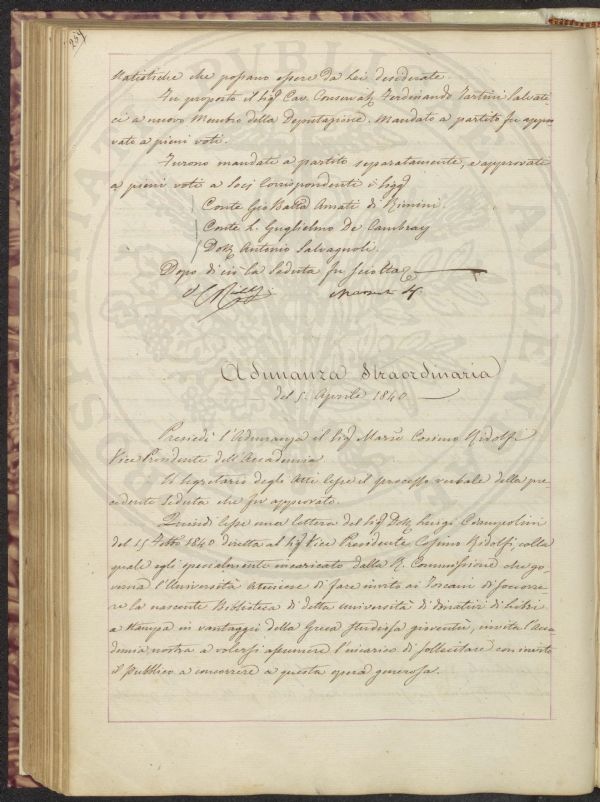 254
statistiche che possano essere da Lei desiderate.
Fu proposto il Sigr. Cav. Conservatre. Ferdinando Tartini Salvati-
ci a nuovo Membro della Deputazione. Mandato a partito fu appro-
vato a pieni voti.
Furono mandati a partito separatamente, e approvati
a pieni voti a Socj Corrispondenti i Sigg.
Conte Gio Batta Amati di Rimini.
Conte L. Guglielmo De Cambray
Dott. Antonio Salvagnoli.
Dopo di ciò la Seduta fu sciolta
Adunanza Straordinaria
del 5. Aprile 1840
Presiedè l'Adunanza il Sig. March. Cosimo Ridolfi
Vice Presidente dell'Accademia
Il Segretario degli Atti lesse il processo verbale della pre-
cedente seduta che fu approvato.
Quindi lesse una lettera del Sig. Dott. Luigi
del 15 Febb. 1840 diretta al Sig. Vice Presidente Cosimo Ridolfi, colla
quale egli specialmente incaricato dalla R. Commissione che go-
verna l'Università Ateniese di fare invito ai Toscani di soccorre-
re la nascente Biblioteca di detta università di donativi di Libri
a stampa in vantaggio della Greca studiosa gioventù, invita l'Acca-
demia nostra a volersi assumere l'incarico di sollecitare con invito
il Pubblico a concorrere a questa opera generosa.